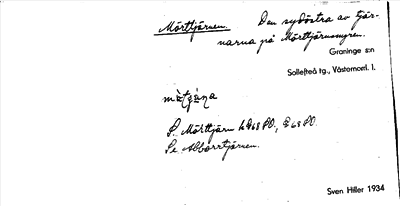 Mörttjärnen. Den sydöstra av tjär-
narna på Mörttjärnsmyren.
Graninge s:n
Sollefteå tg., Västernorrl. l.
S. Mörttjärn
Se Abborrtjärnen.
Sven Hiller 1934